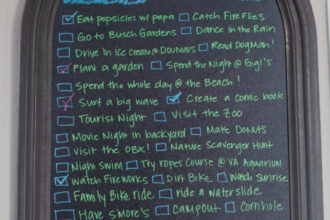 Eat popsicles w/ papa Catch Fire Flies
Go to Busch Gardens Dance in the Rain
Drive In Ice Cream @ Doumars Read Dogman!
Plant a garden Spend the Night @ Gigi's
Spend the whole day @ the Beach!
Surf a big wave Create a comic book
Tourist Night Visit the Zoo
Movie Night in backyard Make Donuts
Visit the OBX! Nature Scavenger Hunt
Night Swim Try Ropes Course @ VA Aquarium
Watch Fireworks Dirt Bike Watch Sunrise
Family Bike ride ride a waterslide
Have S'more's Campout Cornhole